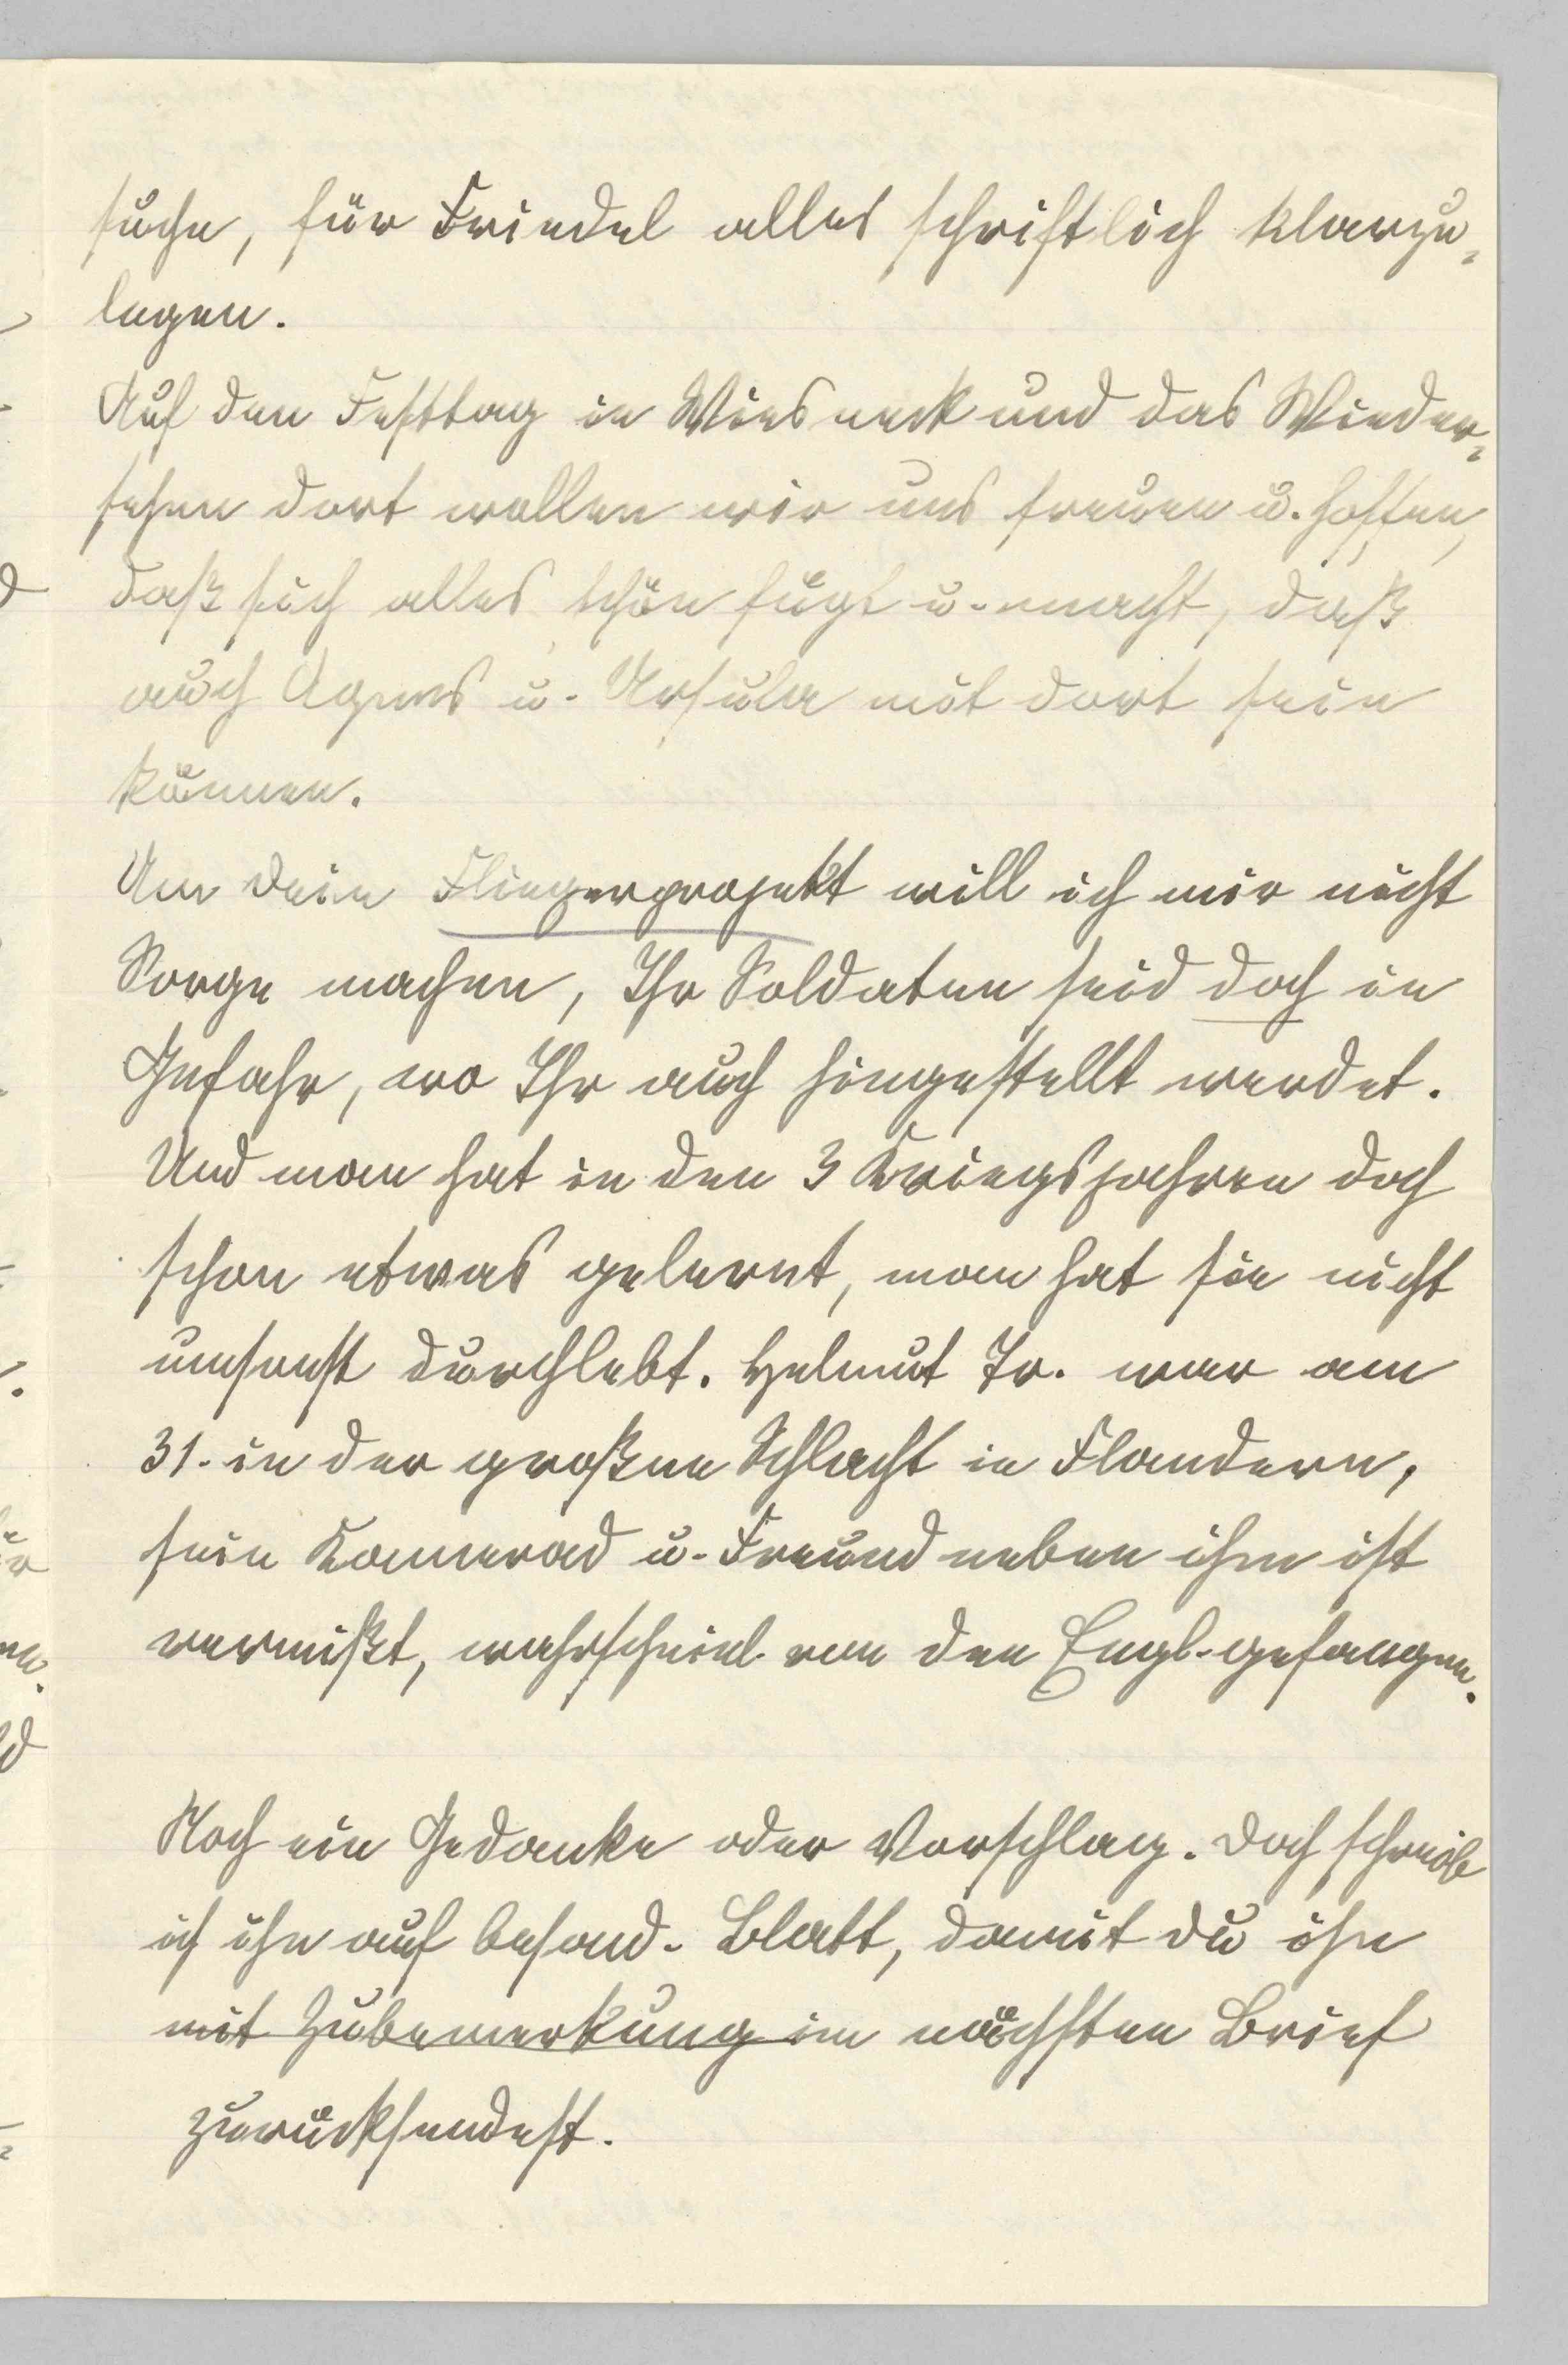 suche, für Friedel alles schriftlich klarzu-
legen.
Auf den Festtag in Wiesneck und das Wieder-
sehen dort wollen wir uns freuen u. hoffen,
daß sich alles schön fügt u. macht, daß
auch Agnes u. Ursula mit dort sein
können.
Um dein Fliegerprojekt will ich mir nicht
Sorge machen, Ihr Soldaten seid doch in
Gefahr, wo Ihr auch hingestellt werdet.
Und man hat in den 3 Kriegsjahren doch
schon etwas gelernt, man hat sie nicht
umsonst durchlebt. Helmut Tr. war am
31. in der großen Schlacht in Flandern,
sein Kamerad u. Freund neben ihm ist
vermißt, wahrscheinl. von den Engl. gefangen.
Noch ein Gedanke oder Vorschlag. Doch schreibe
ich ihn auf besond. Blatt, damit du ihn
mit Zubemerkung im nächsten Brief
zurücksendest.